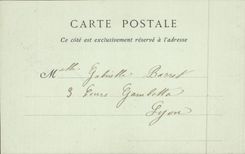 CARTE POSTALE
Ce côté est exclusivement réservé à l'adresse
Mlle Gabrielle Barret
3 Cours Gambetta
Lyon